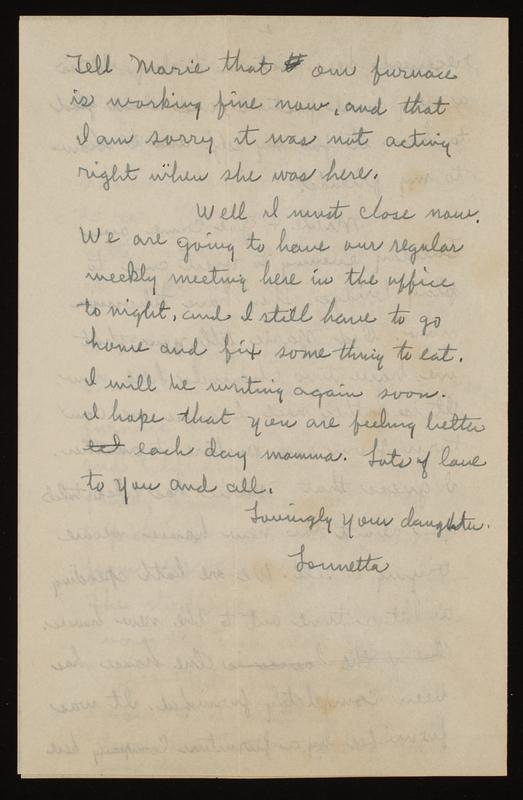 Tell Marie that our furnace
is working fine now, and that
I am sorry it was not acting
right when she was here.
Well I must close now.
We are going to have our regular
weekly meeting here in the office
tonight, and I still have to go
home and fix something to eat.
I will be writing again soon.
I hope that you are feeling better
each day momma. Lots of love
to you and all.
Lovingly your daughter.
Lonnetta